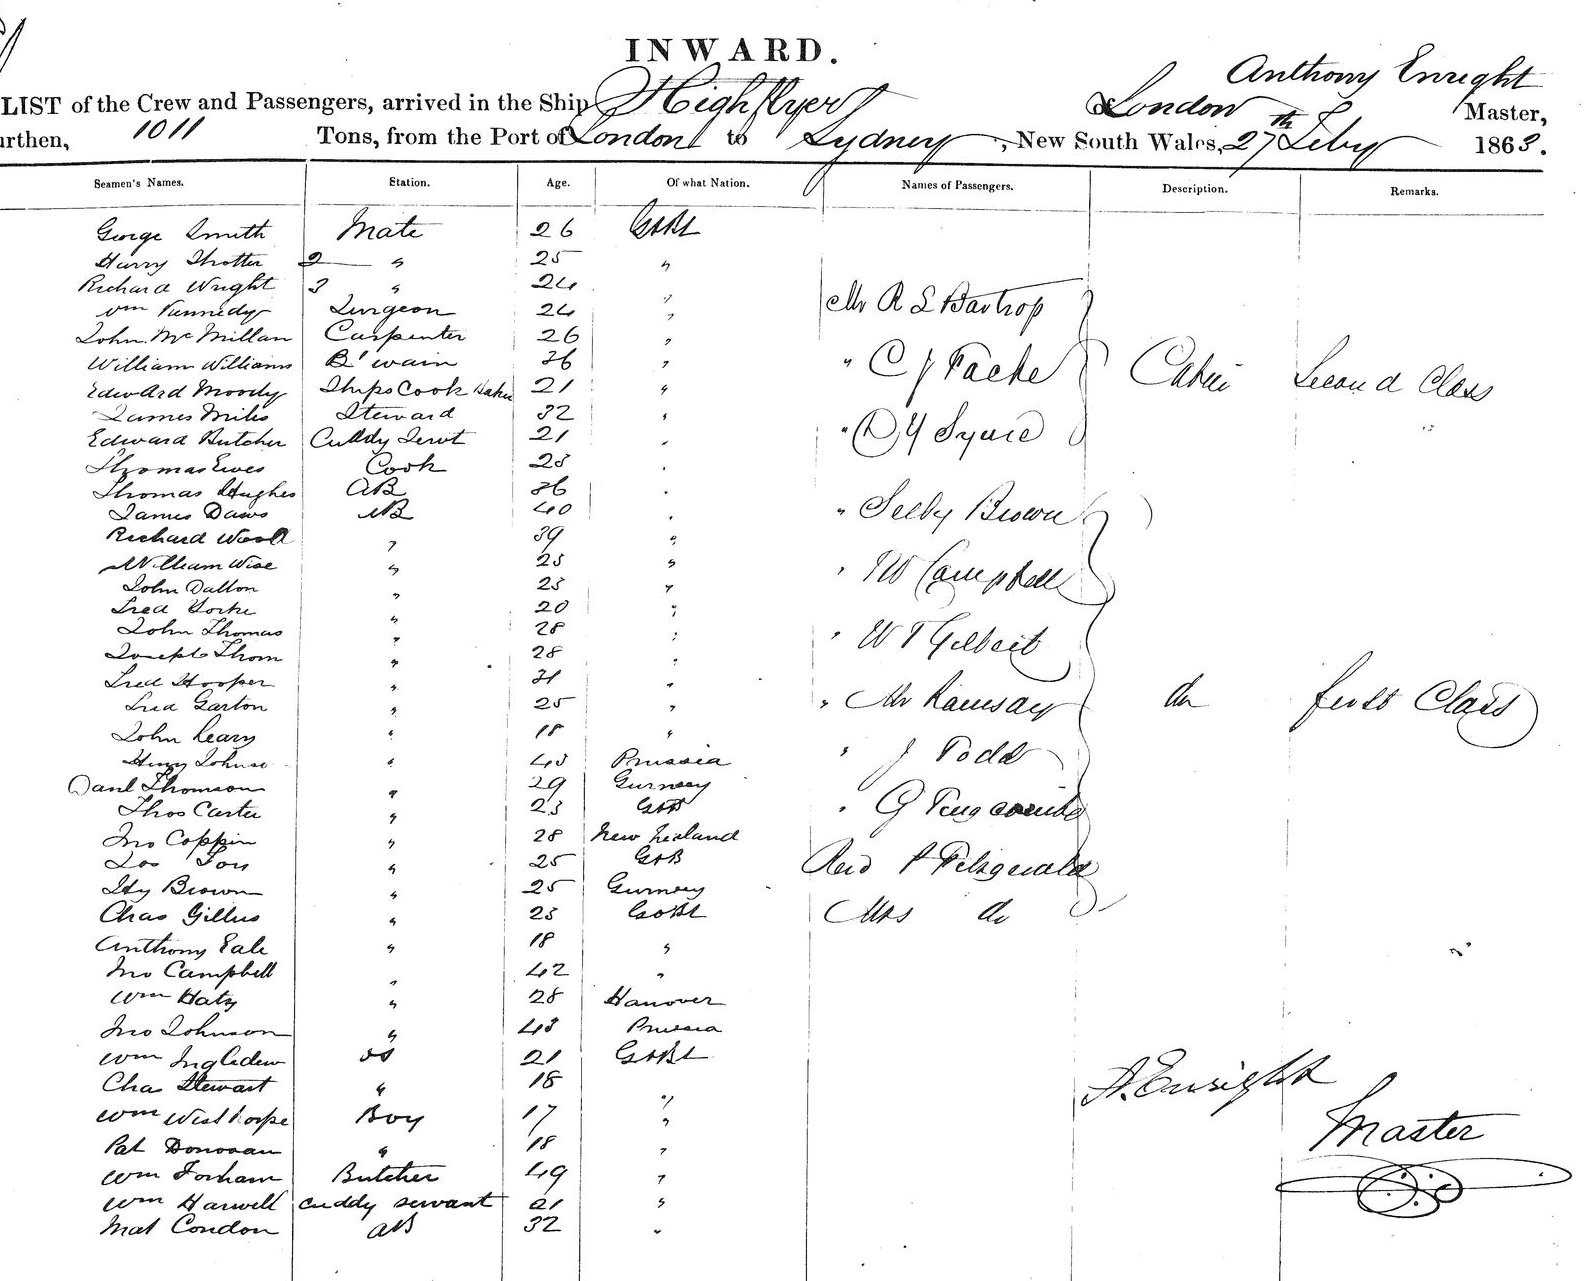 INWARD.
Anthony Enright
LIST of the Crew and Passengers, arrived in the Ship Highflyer of London Master,
urthen, 1011 Tons, from the Port of London to Sydney, New South Wales, 27th Feby 1863.
Seamen's Names. Station. Age. Of what Nation. Names of Passengers. Description. Remarks.
George Smith Mate 26 GtBt
Harry Trotter 2 " 25 "
Richard Wright 3 " 24 "
Wm Kennedy Surgeon 24 " Mr R S Bartrop
John McMillan Carpenter 26 "
William Williams B'wain 36 " " C J Fache Cabin Second Class
Edward Moody Ships Cook Baker 21 "
James Miles Steward 32 "
Edward Butcher Cuddy Servt 21 " " D Y Syme
Thomas Eves Cook 23 "
Thomas Hughes AB 36 "
James Daws AB 40 " " Selby Brown
Richard Wood " 39 "
William Wise " 25 " " W Campbell
John Dalton " 23 "
Fred Yorke " 20 "
John Thomas " 28 " " W T Gilbert
Joseph Thom " 28 "
Fred Hooper " 31 "
Fred Garton " 25 " " Mr Ramsay do first Class
John Leary " 18 "
Henry Johnson " 43 Prussia " J Todd
Danl Thomson " 29 Gurnsey
Thos Carter " 23 GtB " G Pingcombe
Jno Coppin " 28 New Zealand
Jos " 25 GtB Revd P Fitzgerald
Hy Brown " 25 Gurnsey
Chas Gillies " 23 GtBt Mrs do
Anthony " 18 "
Jno Campbell " 42 "
Wm Hatz " 28 Hanover
Jno Johnson " 43 Prussia
Wm Ingledew OS 21 GtBt
Cha Stewart " 18 " A. Enright
Wm Westhorpe Boy 17 " Master
Pat Donovan " 18 "
Wm Forham Butcher 49 "
Wm Harwell cuddy servant 21 "
Mat Condon AB 32 "